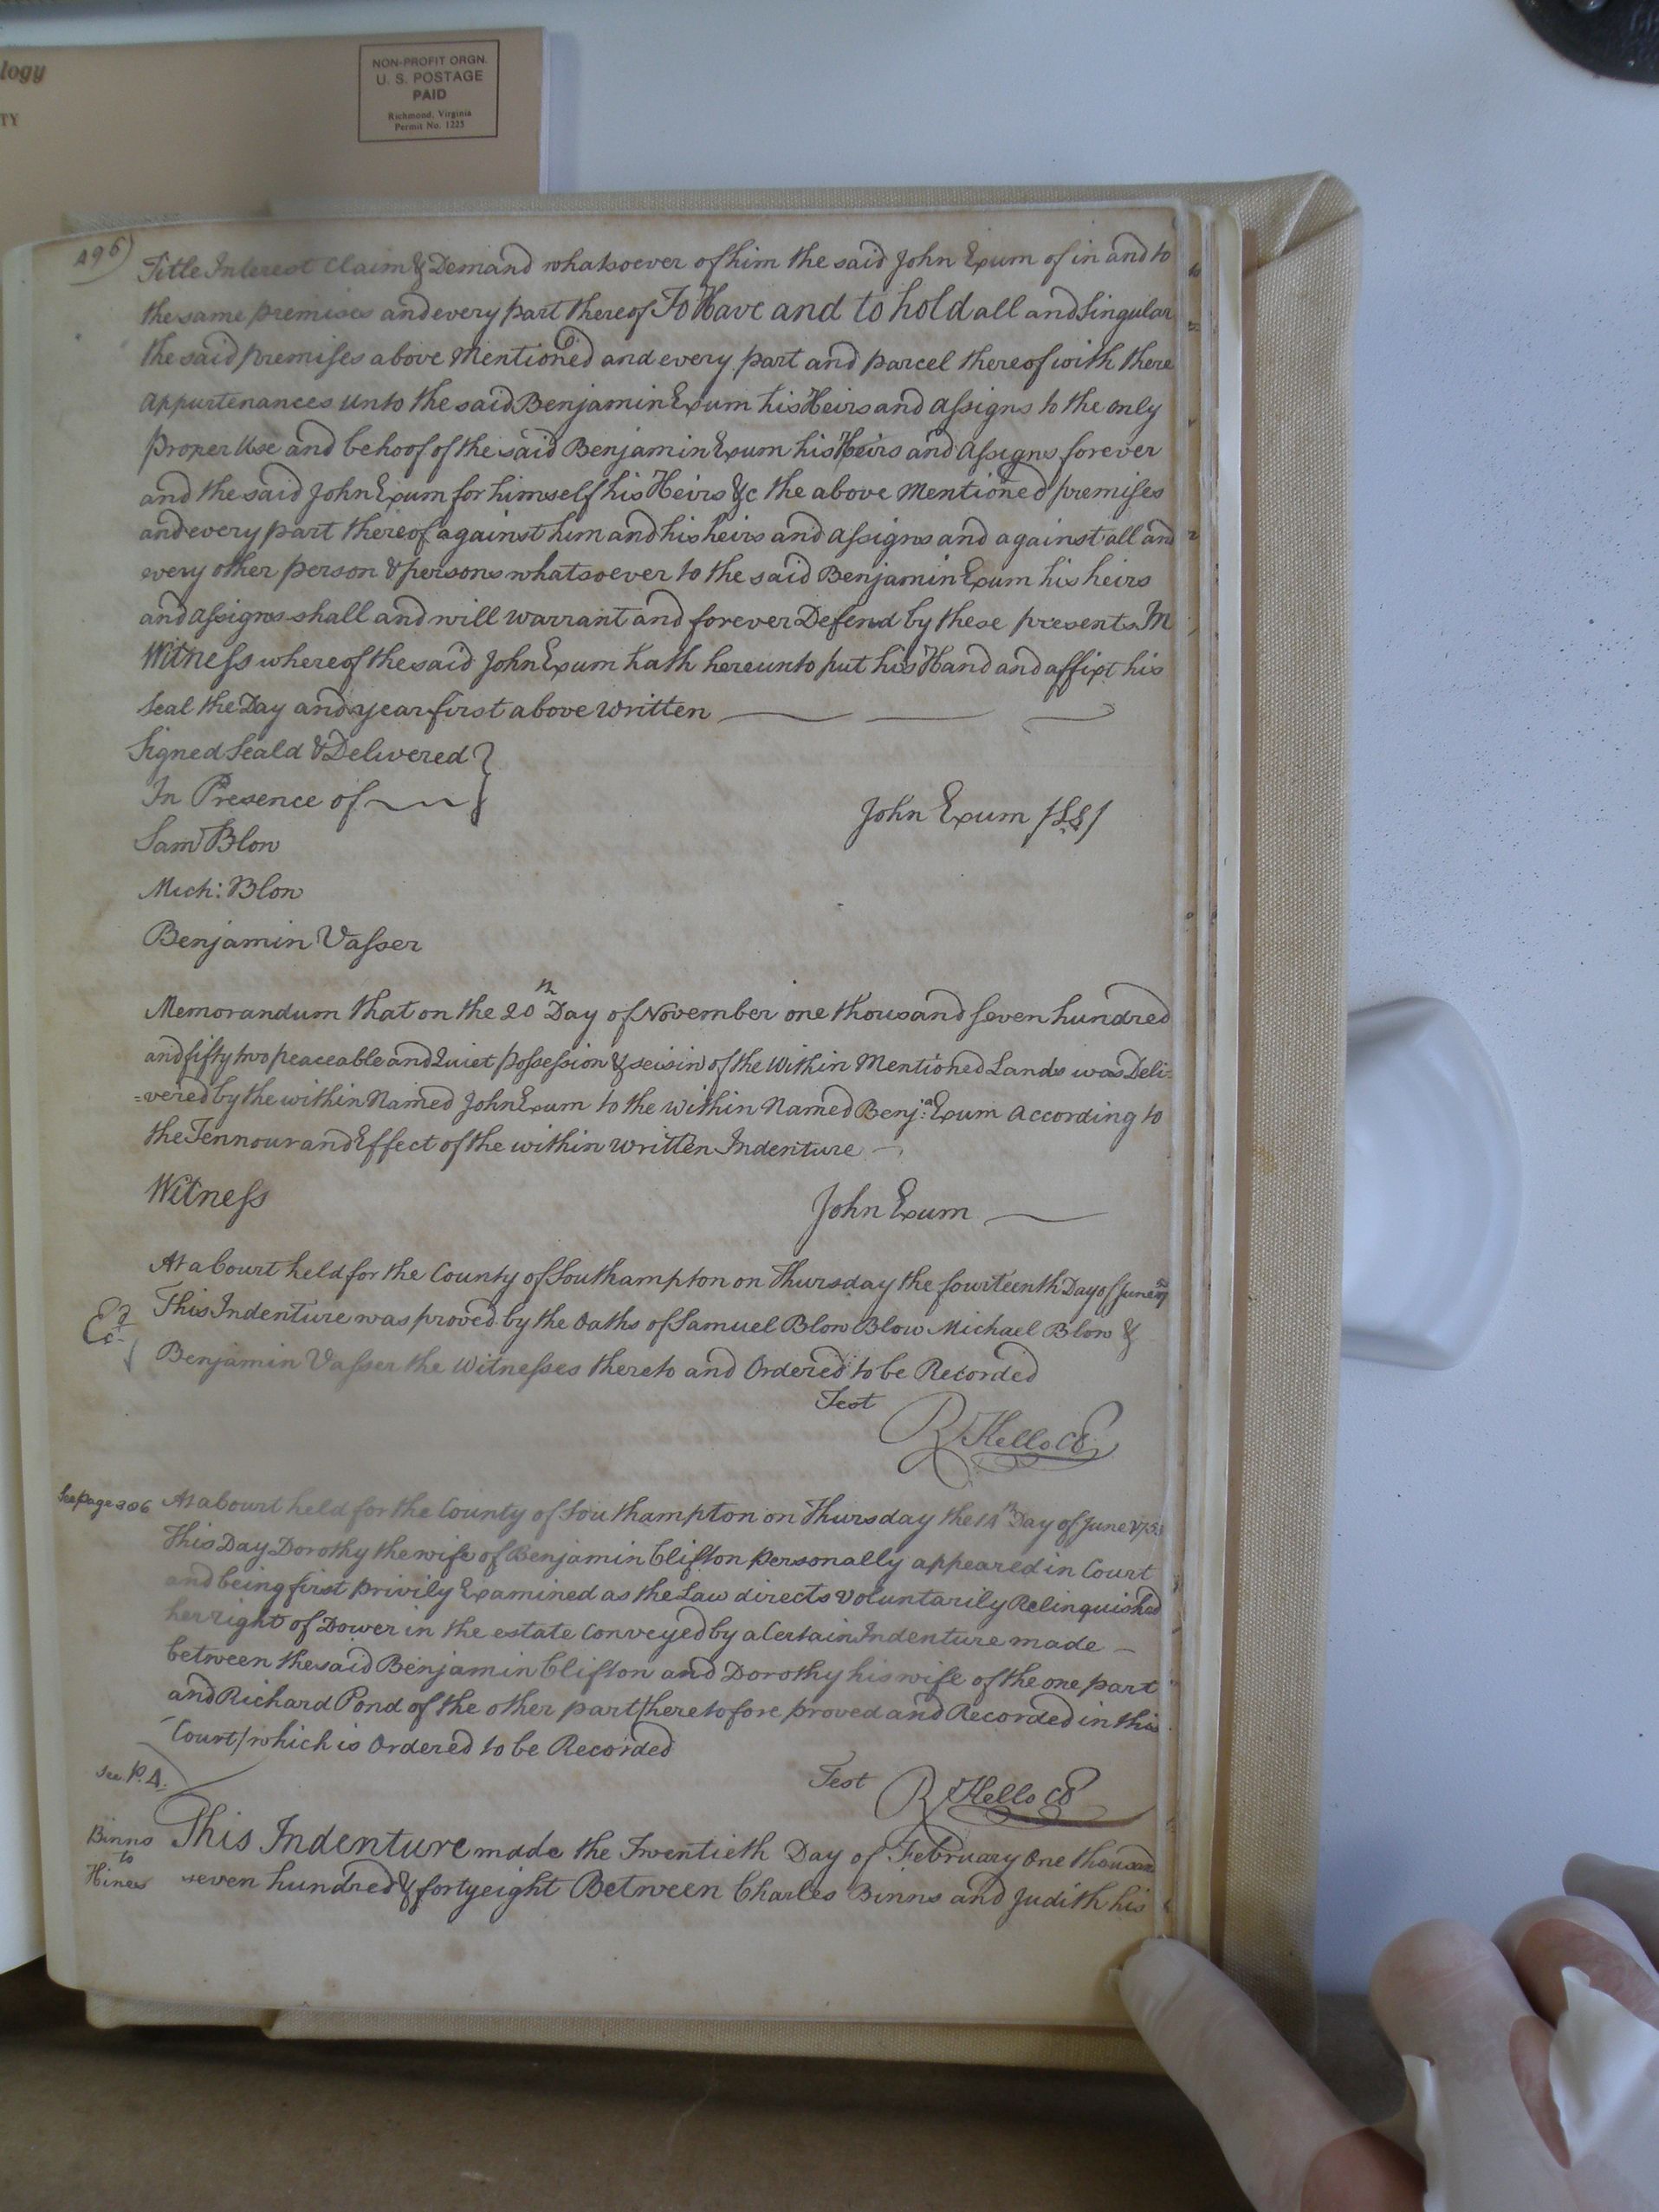 logy
TY
NON-PROFIT ORGN.
U. S. POSTAGE
PAID
Richmond, Virginia
Permit No. 1225
496)
Title Interest Claim & Demand whatsoever of him the said John Exum of in and to
the same premises and every part thereof To Have and to hold all and Singular
the said premises above Mentioned and every part and parcel thereof with there
Appurtenances unto the said Benjamin Exum his Heirs and Assigns to the only
Proper Use and behoof of the said Benjamin Exum his Heirs and Assigns forever
and the said John Exum for himself his Heirs &c the above Mentioned premises
and every part thereof against him and his heirs and assigns and against all and
every other person & persons whatsoever to the said Benjamin Exum his heirs
and Assigns shall and will warrant and forever Defend by these presents In
Witness whereof the said John Exum hath hereunto put his Hand and affixt his
Seal the Day and year first above written
Signed Seald & Delivered }
In Presence of }
John Exum /LS/
Sam Blow
Mich: Blow
Benjamin Vasser
Memorandum that on the 20th Day of November one thousand seven hundred
and fifty two peaceable and Quiet possession & seisin of the Within Mentioned Lands was Deli-
=vered by the within Named John Exum to the within Named Benja: Exum according to
the Tennour and Effect of the within written Indenture
Witness
John Exum
At a Court held for the County of Southampton on Thursday the fourteenth Day of June
This Indenture was proved by the Oaths of Samuel Blow Blow Michael Blow &
Benjamin Vasser the Witnesses thereto and Ordered to be Recorded
Test
R Kello CC
See page 306
At a Court held for the County of Southampton on Thursday the 14th Day of June 175
This Day Dorothy the wife of Benjamin Clifton personally appeared in Court
and being first privily Examined as the Law directs Voluntarily Relinquished
her right of Dower in the estate Conveyed by a Certain Indenture made
between the said Benjamin Clifton and Dorothy his wife of the one part
and Richard Pond of the other part /heretofore proved and Recorded in this
Court/ which is Ordered to be Recorded
Test R Kello CC
see P. 4.
Binns
to
Hines
This Indenture made the Twentieth Day of February One thousand
seven hundred & forty eight Between Charles Binns and Judith his